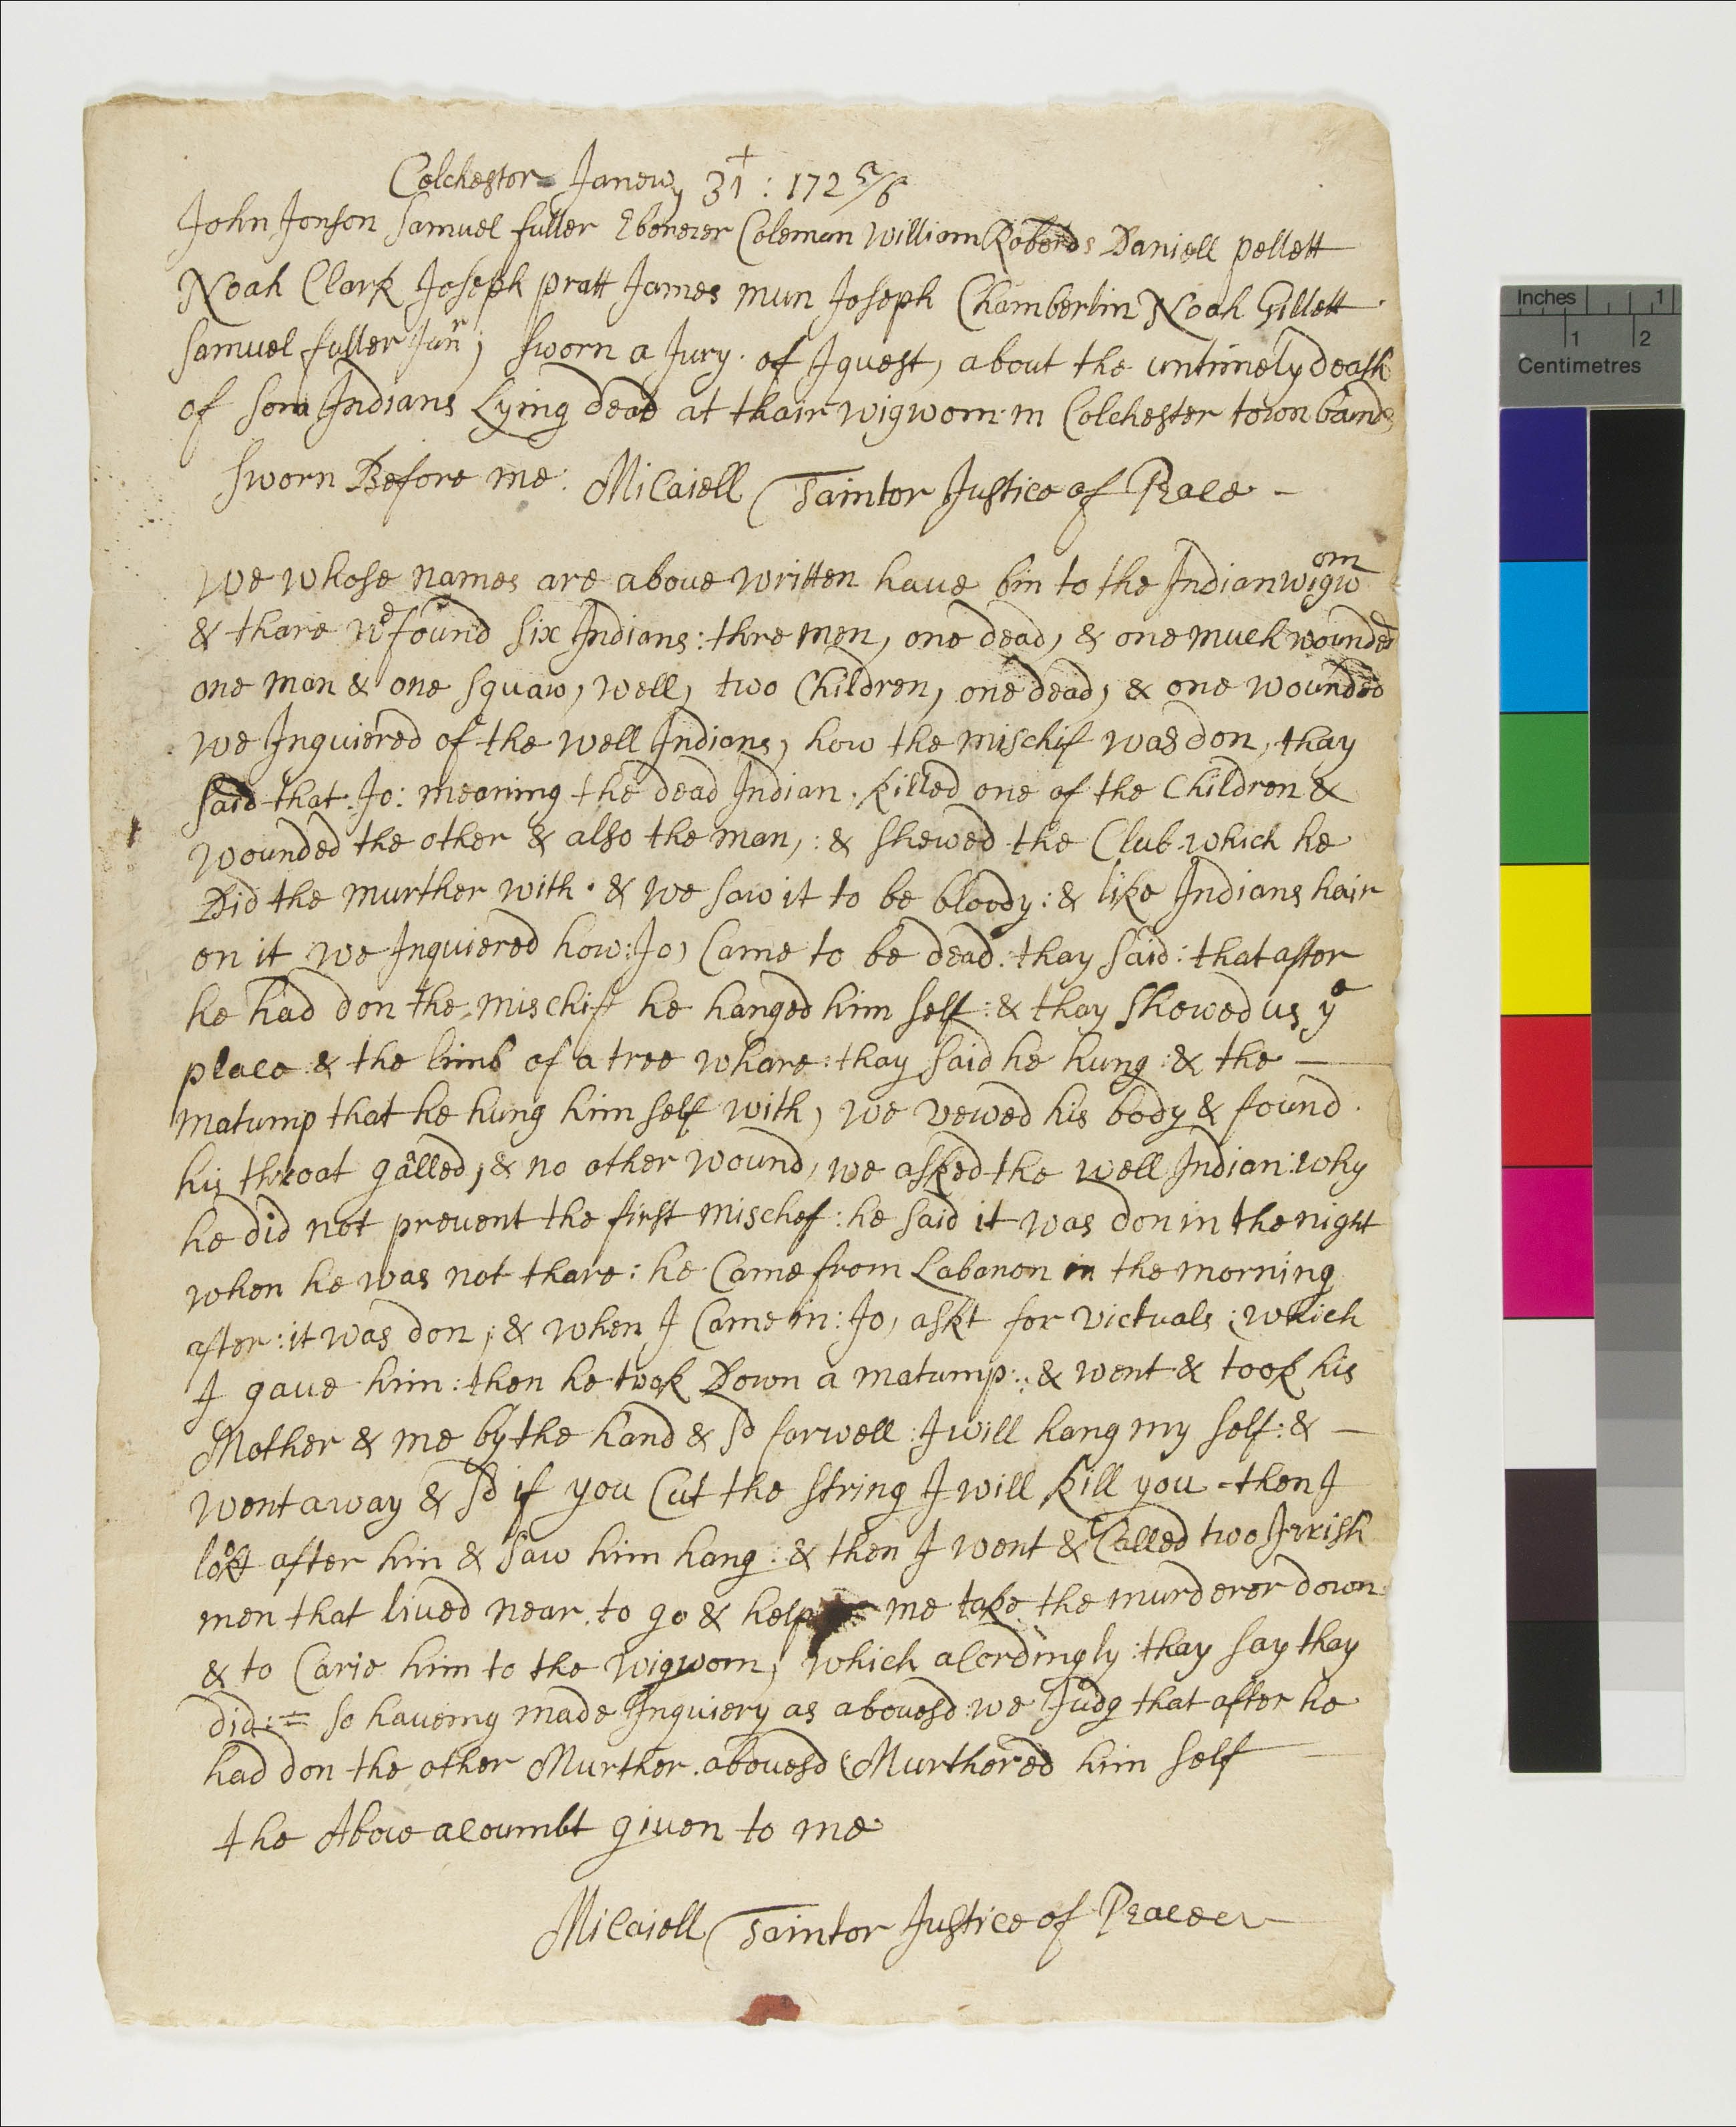 Colchestor Janewy 31t : 172 5/6
John Jonson Samuel fuller Ebenezer Coleman William Roberds Daniell pellett
Noah Clark Joseph pratt James mun Joseph Chamberlin Noah Gillett
Samuel fuller Junr ; sworn a Jury of Iquest, about the untimely death
of som Indians Lying dead at thair wigwom in Colchester town bands
Sworn Before me : Micaiell Taintor Justice of Peace -
We whose names are above written have bin to the Indian wigwom
& thare we found six Indians : thre men, one dead, & one much wounded
one man & one squaw, well, two Children, one dead, & one wounded
we Inquiered of the well Indians, how the mischif was don, thay
said that Jo : meaning the dead Indian, killed one of the Children &
wounded the other & also the man, : & shewed the Club which he
Did the murther with · & we saw it to be bloody : & like Indians hair
on it we Inquiered how : Jo, Came to be dead : thay said : that after
he had don the mischif he hanged him self : & thay shewed us ye
place & the limb of a tree whare : thay said he hung : & the —
matump that he hung him self with, we vewed his body & found
his throat galled, & no other wound, we asked the well Indian : why
he did not prevent the first mischef : he said it was don in the night
when he was not thare : he Came from Labanon in the morning
after : it was don ; & when I Came in : Jo, askt for victuals ; which
I gave him : then he took Down a matump : & went & took his
Mother & me by the hand & sd farwell : I will hang my self : & —
went away & sd if you Cut the string I will kill you - then I
lookt after him & saw him hang : & then I went & Called two Irrish
men that lived near to go & help me take the murderer down
& to Carie him to the wigwom, which acordingly : thay say thay
did : = so haveing made Inquiery as abovesd we Judg that after he
had don the other Murther abovesd Murthered him self
the Above acoumbt given to me
Micaiell Taintor Justice of Peace
Inches 1
1 2
Centimetres